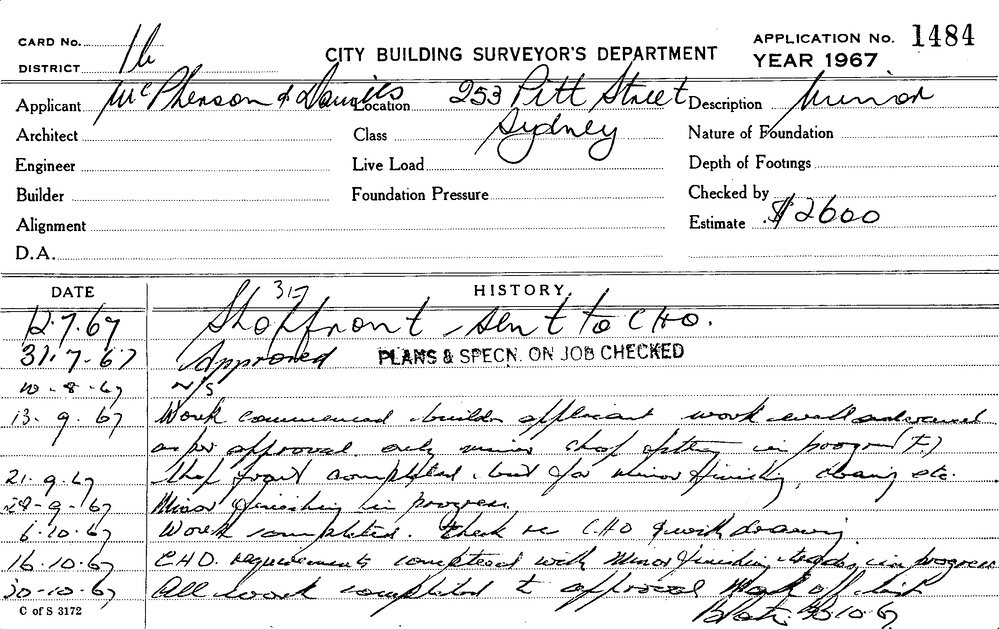 CARD No. 16
DISTRICT
CITY BUILDING SURVEYOR'S DEPARTMENT
APPLICATION No. 1484
YEAR 1967
Applicant McPherson & Daniels Location 253 Pitt Street Description Minor
Architect Class Sydney Nature of Foundation
Engineer Live Load Depth of Footings
Builder Foundation Pressure Checked by
Alignment Estimate $2600
D.A.
DATE HISTORY
317
12.7.67 Shopfront - sent to CHO.
31.7-67 Approved PLANS & SPECN. ON JOB CHECKED
10-8-67 N/S
13.9.67 Work commenced builder applicant work well advanced
as per approval only minor shop fitting in progress
21.9.67 Shop front completed but for minor finishing, etc.
28-9-67 Minor finishing in progress.
6.10.67 Work completed. Check re CHO
16.10.67 CHO. requirements completed with minor finishing in progress
30-10-67 All work completed to approval Mark off
30-10-67
C of S 3172